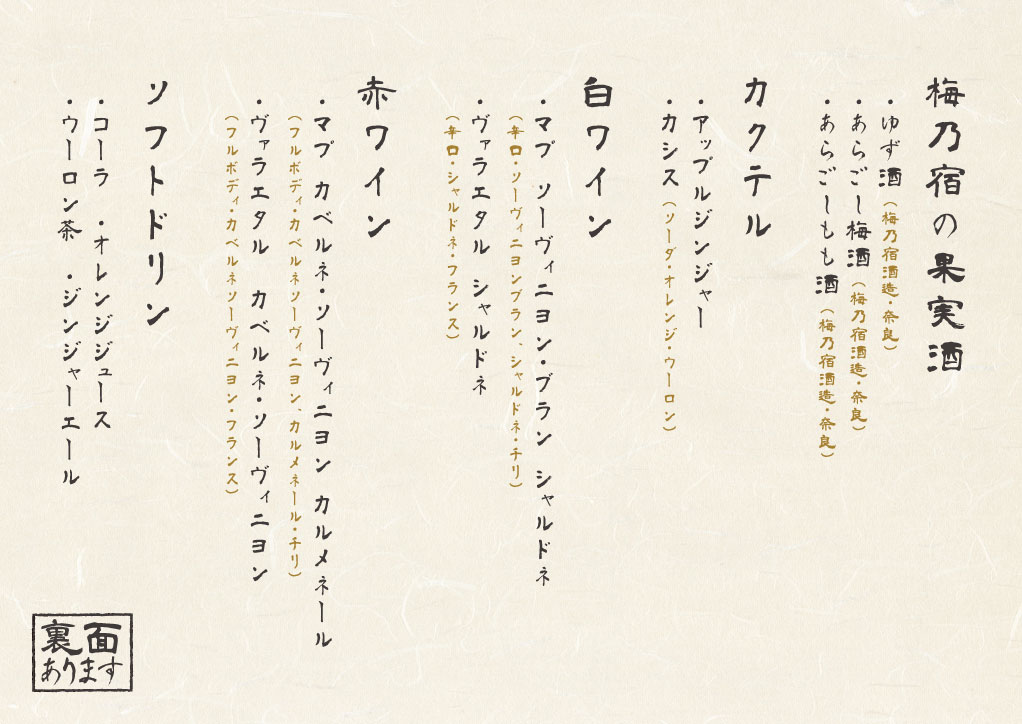 梅乃宿の果実酒
・ゆず酒（梅乃宿酒造・奈良）
・あらごし梅酒（梅乃宿酒造・奈良）
・あらごしもも酒（梅乃宿酒造・奈良）
カクテル
・アップルジンジャー
・カシス（ソーダ・オレンジ・ウーロン）
白ワイン
・マプ ソーヴィニヨン・ブラン シャルドネ
（辛口・ソーヴィニヨンブラン、シャルドネ・チリ）
・ヴァラエタル シャルドネ
（辛口・シャルドネ・フランス）
赤ワイン
・マプ カベルネ・ソーヴィニヨン カルメネール
（フルボディ・カベルネソーヴィニヨン、カルメネール・チリ）
・ヴァラエタル カベルネ・ソーヴィニヨン
（フルボディ・カベルネソーヴィニヨン・フランス）
ソフトドリン
・コーラ ・オレンジジュース
・ウーロン茶 ・ジンジャーエール
裏面
あります